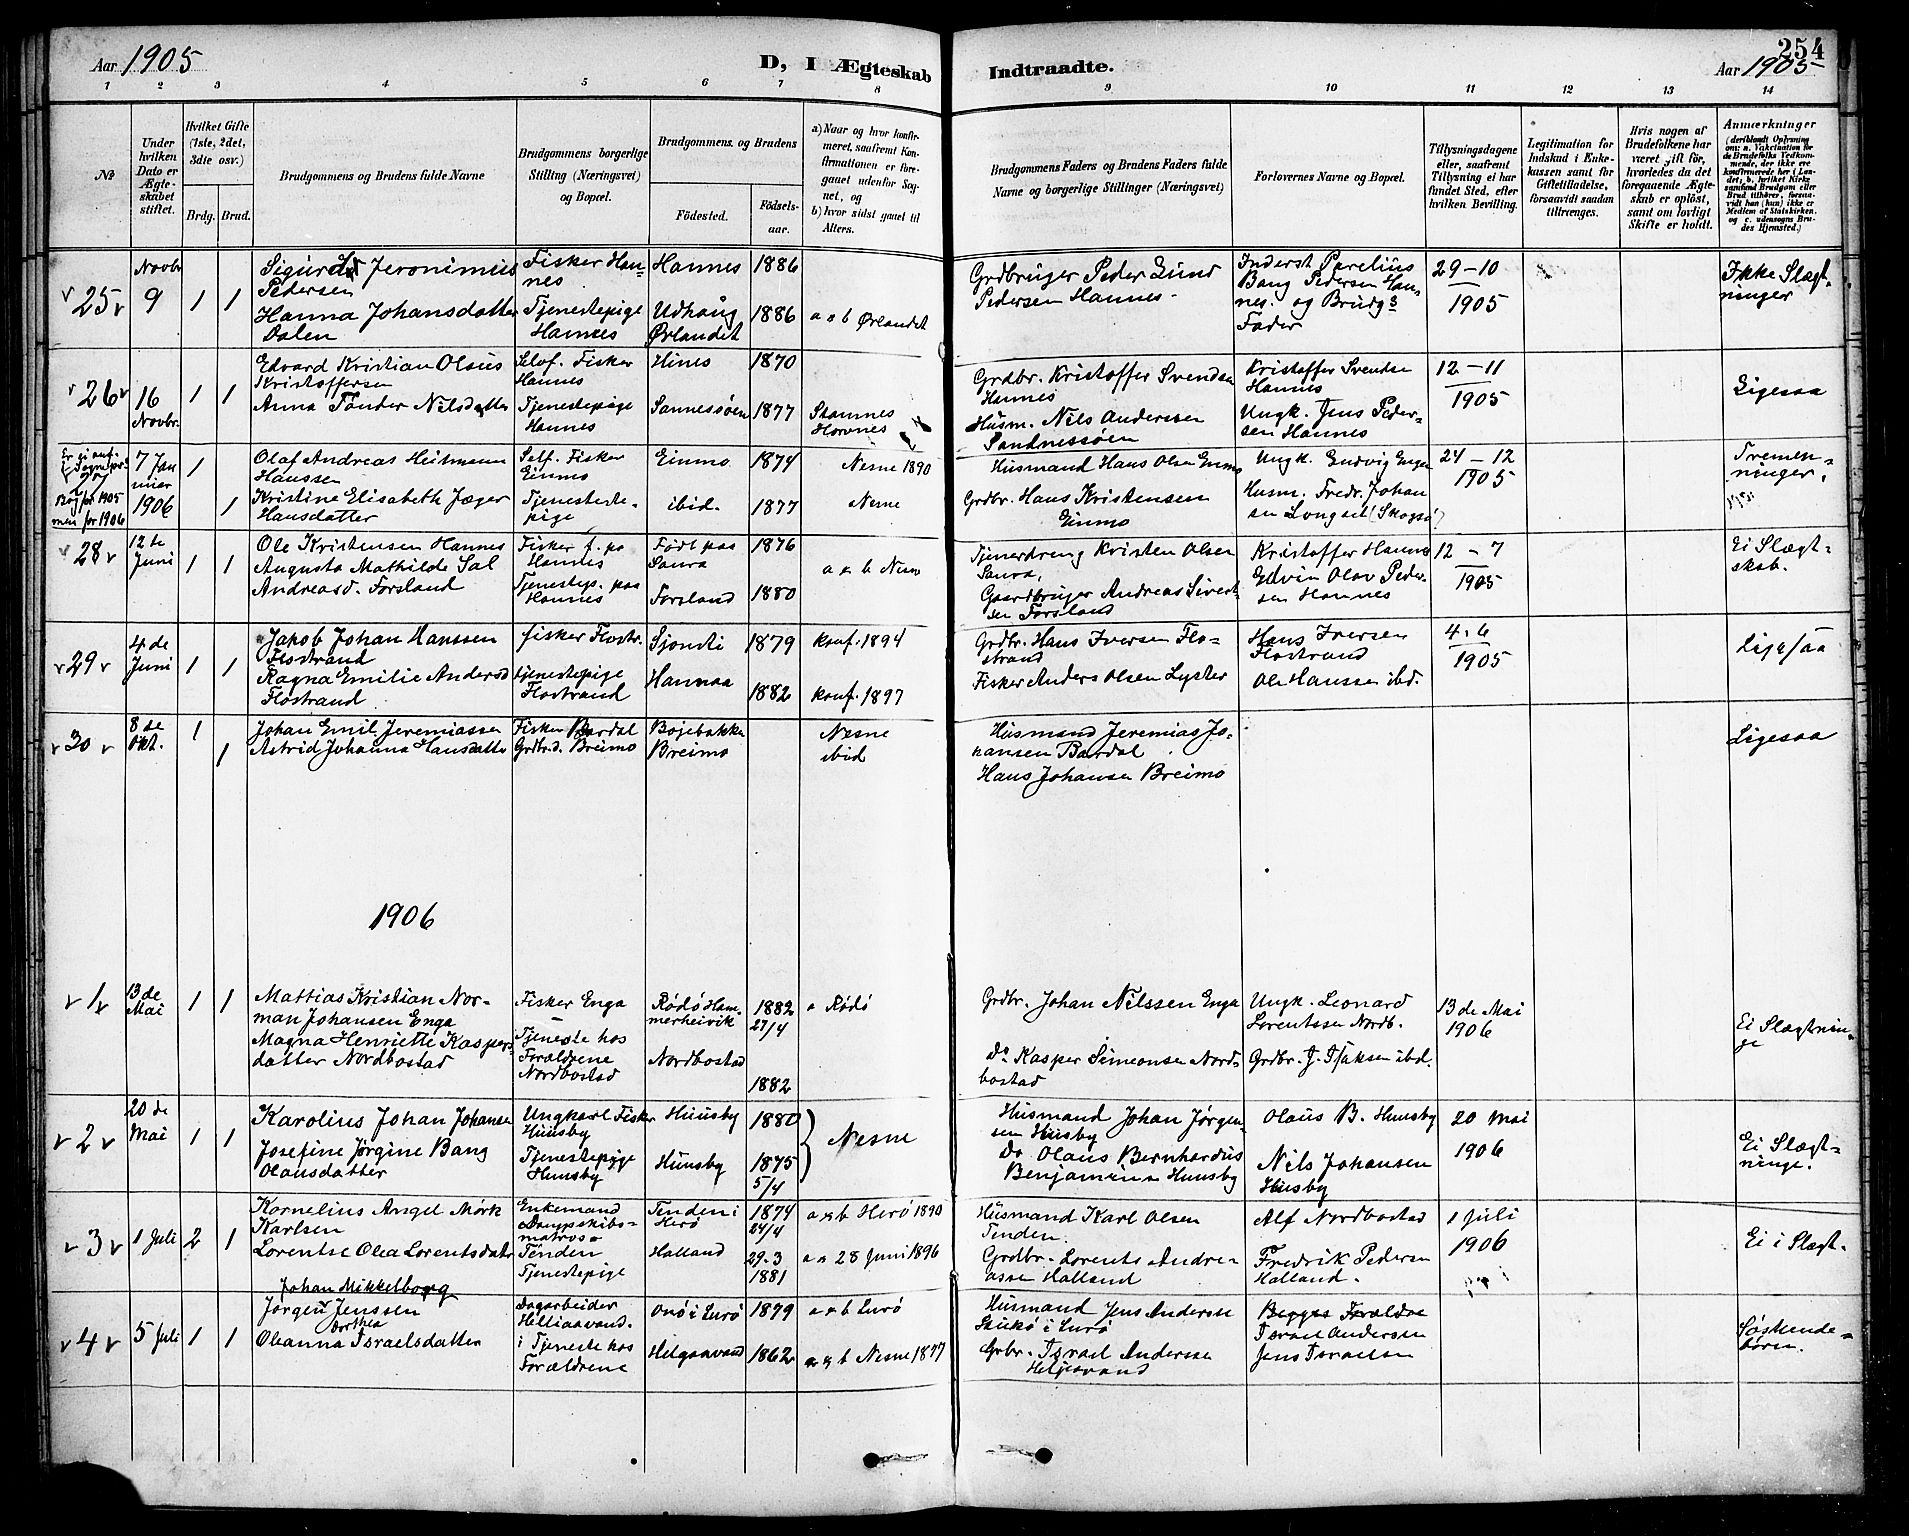 Aar 1905
D, I Ægteskab Indtraadte.
254
Aar 1905
1 2 3 4 5 6 7 8 9 10 11 12 13 14
No
Under hvilken Dato er Ægteskabet stiftet.
Hvilket Gifte (1ste, 2det, 3die osv.)
Brdg. Brud.
Brudgommens og Brudens fulde Navne
Brudgommens borgerlige Stilling (Næringsvei) og Bopæl.
Brudgommens og Brudens
Fødested. Fødselsaar.
a) Naar og hvor konfirmeret, saafremt Konfirmationen er foregaaet udenfor Sognet, og
b) hvor sidst gaaet til Alters.
Brudgommens Faders og Brudens Faders fulde Navne og borgerlige Stillinger (Næringsvei)
Forlovernes Navne og Bopæl.
Tillysningsdagene eller, saafremt Tillysning ei har fundet Sted, efter hvilken Bevilling.
Legitimation for Indskud i Enkekassen samt for Giftetilladelse, forsaavidt saadan tiltrænges.
Hvis nogen af Brudefolkene har været gift før, hvorledes da det foregaaende Ægteskab er opløst, samt om lovligt Skifte er holdt.
Anmærkninger
(deriblandt Oplysning om: a. Vakcination for de Brudefolks Vedkommende, der ikke ere konfirmerede her i Landet; b. hvilket Kirkesamfund Brudgom eller Brud tilhører, forsaavidt han (hun) ikke er Medlem af Statskirken, og c. udensogns Brudes Hjemsted.)
25 Novbr 9 1 1
Sigurd Jeronimus
Pedersen
Hanna Johansdatter
Dalen
Fisker Hannes
Tjenestepige
Hannes
Hannes 1886
Udhaug
Ørlandet 1886
a & b Ørlandet
Grdbruger Peder Lund
Pedersen Hannes
Inderst Parelius
Bang Pedersen Hannes. og Brudgs
Fader
29-10
1905
Ikke Slægtninger
26 16 Novbr. 1 1
Edvard Kristian Olaus
Kristoffersen
Anna Tønder Nilsdatter
Selvf. Fisker
Hannes
Tjenestepige
Hannes
Hines 1870
Sannessøen 1877
Stamnes
Grdbr. Kristoffer Svendsen
Hannes
Husm. Nils Anderssen
Sandnessøen
Kristoffer Svendse
Hannes
Ungk. Jens Pedersen Hannes
12-11
1905
Ligesaa
7 Januier
1906 1 1
for 1905
men for 1906
Olaf Andreas Heitmann
Hanssen
Kristine Elisabeth Jæger
Hansdatter
Self. Fisker
Einmo
Tjenestepige
Einmo 1874
ibid. 1877
Nesne 1890
Nesne
Husmand Hans Olsen Einmo
Grdbr. Hans Kristensen
Einmo
Ungk. Ludvig Enge
Husm. Fredr. Johansen Longset (Skogsø)
24-12
1905
Tremenninger.
28 12te Juni 1 1
Ole Kristensen Hannes
Augusta Mathilde Sal
Andreasd. Forsland
Fisker f. pa
Hannes
Tjenestep. paa
Hannes
Født paa
Saura 1876
Forsland 1880
a & b Nesne
Tjenerdreng Kristen Olsen
Saura,
Gaardbruger Andreas Sivertsen Forsland
Kristoffer Hannes
Edvin Olav Pedersen Hannes
12-7
1905
Ei Slægtskab.
29 4de Juni 1 1
Jakob Johan Hanssen
Flostrand
Ragna Emilie Andersd
Flostrand
fisker Flostr.
tjenestepige
Flostrand
Sjonsti 1879
Hannaa 1882
konf. 1894
konf. 1897
Grdbr. Hans Iversen Flostrand
Fisker Anders Olsen Lyster
Hans Iversen
Flostrand
Ole Hanssen ibd.
4-6
1905
Ligesaa
30 8de Okt. 1 1
Johan Emil Jeremiassen
Astrid Johanna Hansdatter
Fisker Bardal
Grdbr.d. Breimo
Bøjebakke
Breimo
Nesne
ibid
Husmand Jeremias Johansen Bardal
Hans Johansen Breimo
Ligesaa
1906
1 13de Mai 1 1
Mattias Kristian Norman Johansen Enga
Magna Henriette Kaspersdatter Nordbostad
Fisker Enga
Tjeneste hos
Forældrene
Nordbostad
Rødø Hammerheivik 1882 27/4
Nordbostad 1882
a Rødø
Grdbr. Johan Nilssen Enga
Do Kasper Simeonsen Nordbostad
Ungk. Leonard
Lorentssen Nordb.
Grdbr. J. Isaksen ibd.
13de Mai
1906
Ei Slægtninge
2 20de Mai 1 1
Karolius Johan Johansen
Josefine Jørgine Bang
Olausdatter
Ungkarl Fisker
Huusby
Tjenestepige
Huusby
Huusby 1880
Huusby 1875 5/4
Nesne
Husmand Johan Jørgensen Husby
Do Olaus Bernhardus
Benjaminsen Huusby
Olaus B. Huusby
Nils Johansen
Husby
20 Mai
1906
Ei Slægtninge.
3 1 Juli 2 1
Kornelius Angel Mørk
Karlsen
Lorentse Olea Lorentsdatr
Enkemand
Dampskibsmatros
Tenden
Tjenestepige
Tenden i
Herø 1874 24/4
Halland 29-3 1881
a & b Herø 1890
a & 28 Juni 1896
Husmand Karl Olsen
Tenden
Grdbr. Lorents Andreassen Halland
Alf Nordbostad
Fredrik Pedersen
Halland.
1 Juli
1906
Ei i Slægt.
4 5 Juli 1 1
Johan Mikkelborg
Jørgen Jenssen
Dorthea
Oleanna Israelsdatter
Dagarbeider
Helliaavand.
i Tjeneste hos
Forældrene
Onø i Lurø 1879
Helgaavand 1862
a & b Lurø
a & b Nesne 1877
Husmand Jens Anderssen
i Lurø
Grbr. Israel Anderssen
Begges Forældre
Israel Andersen
Jens Israelsen
Søskendebørn.